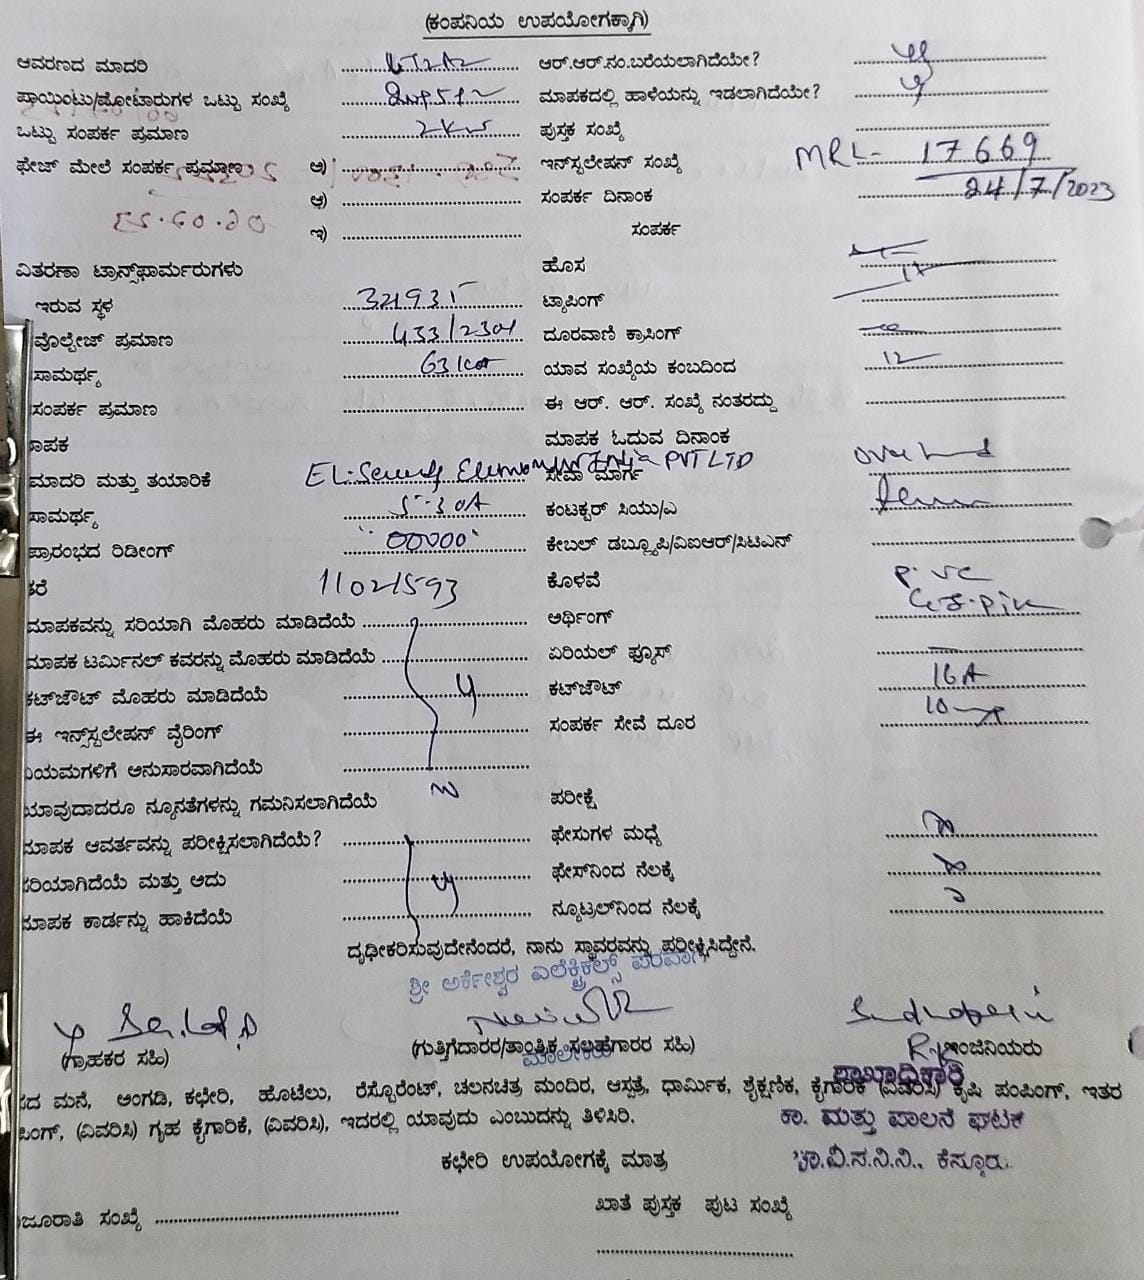 (ಕಂಪನಿಯ ಉಪಯೋಗಕ್ಕಾಗಿ)
ಆವರಣದ ಮಾದರಿ ಆರ್.ಆರ್.ನಂ.ಬರೆಯಲಾಗಿದೆಯೇ? y
ಪಾಯಿಂಟು/ಮೋಟಾರುಗಳ ಒಟ್ಟು ಸಂಖ್ಯೆ ಮಾಪಕದಲ್ಲಿ ಹಾಳೆಯನ್ನು ಇಡಲಾಗಿದೆಯೇ? y
ಒಟ್ಟು ಸಂಪರ್ಕ ಪ್ರಮಾಣ 2kw ಪುಸ್ತಕ ಸಂಖ್ಯೆ
ಫೇಜ್ ಮೇಲೆ ಸಂಪರ್ಕ ಪ್ರಮಾಣ ಅ) ಇನ್‌ಸ್ಟಲೇಷನ್ ಸಂಖ್ಯೆ MRL- 17669
ಆ) ಸಂಪರ್ಕ ದಿನಾಂಕ 24/7/2023
ಇ) ಸಂಪರ್ಕ
ವಿತರಣಾ ಟ್ರಾನ್ಸ್‌ಫಾರ್ಮರುಗಳು ಹೊಸ
ಇರುವ ಸ್ಥಳ ಟ್ಯಾಪಿಂಗ್
ವೋಲ್ಟೇಜ್ ಪ್ರಮಾಣ 433/230v ದೂರವಾಣಿ ಕ್ರಾಸಿಂಗ್
ಸಾಮರ್ಥ್ಯ ಯಾವ ಸಂಖ್ಯೆಯ ಕಂಬದಿಂದ 12
ಸಂಪರ್ಕ ಪ್ರಮಾಣ ಈ ಆರ್. ಆರ್. ಸಂಖ್ಯೆ ನಂತರದ್ದು
ಾಪಕ ಮಾಪಕ ಓದುವ ದಿನಾಂಕ
ಮಾದರಿ ಮತ್ತು ತಯಾರಿಕೆ PVT LTD ಸೇವಾ ಮಾರ್ಗ
ಸಾಮರ್ಥ್ಯ 5-30A ಕಂಟಕ್ಟರ್ ಸಿಯು/ಎ
ಪ್ರಾರಂಭದ ರಿಡೀಂಗ್ "00000" ಕೇಬಲ್ ಡಬ್ಲ್ಯೂಪಿ/ವಿಐಆರ್/ಸಿಟಿಎಸ್
ಕರೆ 11021593 ಕೊಳವೆ P.VC
ಮಾಪಕವನ್ನು ಸರಿಯಾಗಿ ಮೊಹರು ಮಾಡಿದೆಯೆ ಅರ್ಥಿಂಗ್
ಮಾಪಕ ಟರ್ಮಿನಲ್ ಕವರನ್ನು ಮೊಹರು ಮಾಡಿದೆಯೆ ಏರಿಯಲ್ ಫ್ಯೂಸ್
ಕಟ್‌ಜೌಟ್ ಮೊಹರು ಮಾಡಿದೆಯೆ y ಕಟ್‌ಜೌಟ್ 16A
ಈ ಇನ್ಸ್‌ಸ್ಟಲೇಷನ್ ವೈರಿಂಗ್ ಸಂಪರ್ಕ ಸೇವೆ ದೂರ
ನಿಯಮಗಳಿಗೆ ಅನುಸಾರವಾಗಿದೆಯೆ
ಯಾವುದಾದರೂ ನ್ಯೂನತೆಗಳನ್ನು ಗಮನಿಸಲಾಗಿದೆಯೆ ಪರೀಕ್ಷೆ
ಮಾಪಕ ಆವರ್ತವನ್ನು ಪರೀಕ್ಷಿಸಲಾಗಿದೆಯೆ? ಫೇಸುಗಳ ಮಧ್ಯೆ
ಸರಿಯಾಗಿದೆಯೆ ಮತ್ತು ಅದು ಫೇಸ್‌ನಿಂದ ನೆಲಕ್ಕೆ
ಮಾಪಕ ಕಾರ್ಡನ್ನು ಹಾಕಿದೆಯೆ ನ್ಯೂಟ್ರಲ್‌ನಿಂದ ನೆಲಕ್ಕೆ
ದೃಢೀಕರಿಸುವುದೇನೆಂದರೆ, ನಾನು ಸ್ಥಾವರವನ್ನು ಪರೀಕ್ಷಿಸಿದ್ದೇನೆ.
ಶ್ರೀ ಅರ್ಕೇಶ್ವರ ಎಲೆಕ್ಟ್ರಿಕಲ್ಸ್ ಪರವಾಗಿ
(ಗ್ರಾಹಕರ ಸಹಿ) (ಗುತ್ತಿಗೆದಾರರ/ತಾಂತ್ರಿಕ ಸಲಹಾಗಾರರ ಸಹಿ) ಇಂಜಿನಿಯರು
ಮಾಲೀಕರು ಶಾಖಾಧಿಕಾರಿ
ದ ಮನೆ, ಅಂಗಡಿ, ಕಛೇರಿ, ಹೊಟೆಲು, ರೆಸ್ಟೊರೆಂಟ್, ಚಲನಚಿತ್ರ ಮಂದಿರ, ಆಸ್ಪತ್ರೆ, ಧಾರ್ಮಿಕ, ಶೈಕ್ಷಣಿಕ, ಕೈಗಾರಿಕೆ (ವಿವರಿಸಿ) ಕೃಷಿ ಪಂಪಿಂಗ್, ಇತರ
ಪಿಂಗ್, (ವಿವರಿಸಿ) ಗೃಹ ಕೈಗಾರಿಕೆ, (ವಿವರಿಸಿ), ಇದರಲ್ಲಿ ಯಾವುದು ಎಂಬುದನ್ನು ತಿಳಿಸಿರಿ. ಕಾ. ಮತ್ತು ಪಾಲನೆ ಘಟಕ
ಕಛೇರಿ ಉಪಯೋಗಕ್ಕೆ ಮಾತ್ರ ಚಾ.ವಿ.ಸ.ನಿ.ನಿ., ಕೆಸ್ತೂರು.
ಜೂರಾತಿ ಸಂಖ್ಯೆ ಖಾತೆ ಪುಸ್ತಕ ಪುಟ ಸಂಖ್ಯೆ